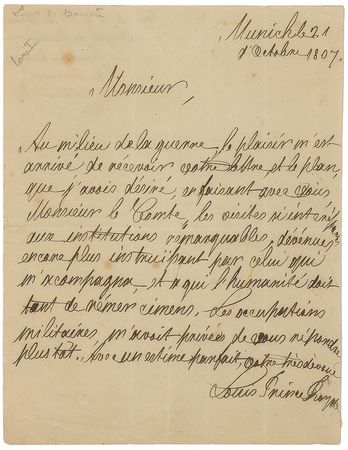 Louis de Bavière
Louis I
Munich le 21
d'Octobre 1807.
Monsieur,
Au milieu de la guerre, le plaisir m'est
arrivé de récevoir votre lettre et le plan,
que j'avois desiré, en faisant avec vous
Monsieur le Comte, les visites si
aux institutions rémarquables, dévenues
encore plus instruisant par celui qui
m'acompagna, et a qui l'humanité doit
tant de rémercimens. Les occupations
militaires, m'avoit privées de vous répondre
plus tôt. Avec un estime parfait votre très devoué
Louis Prince Royale